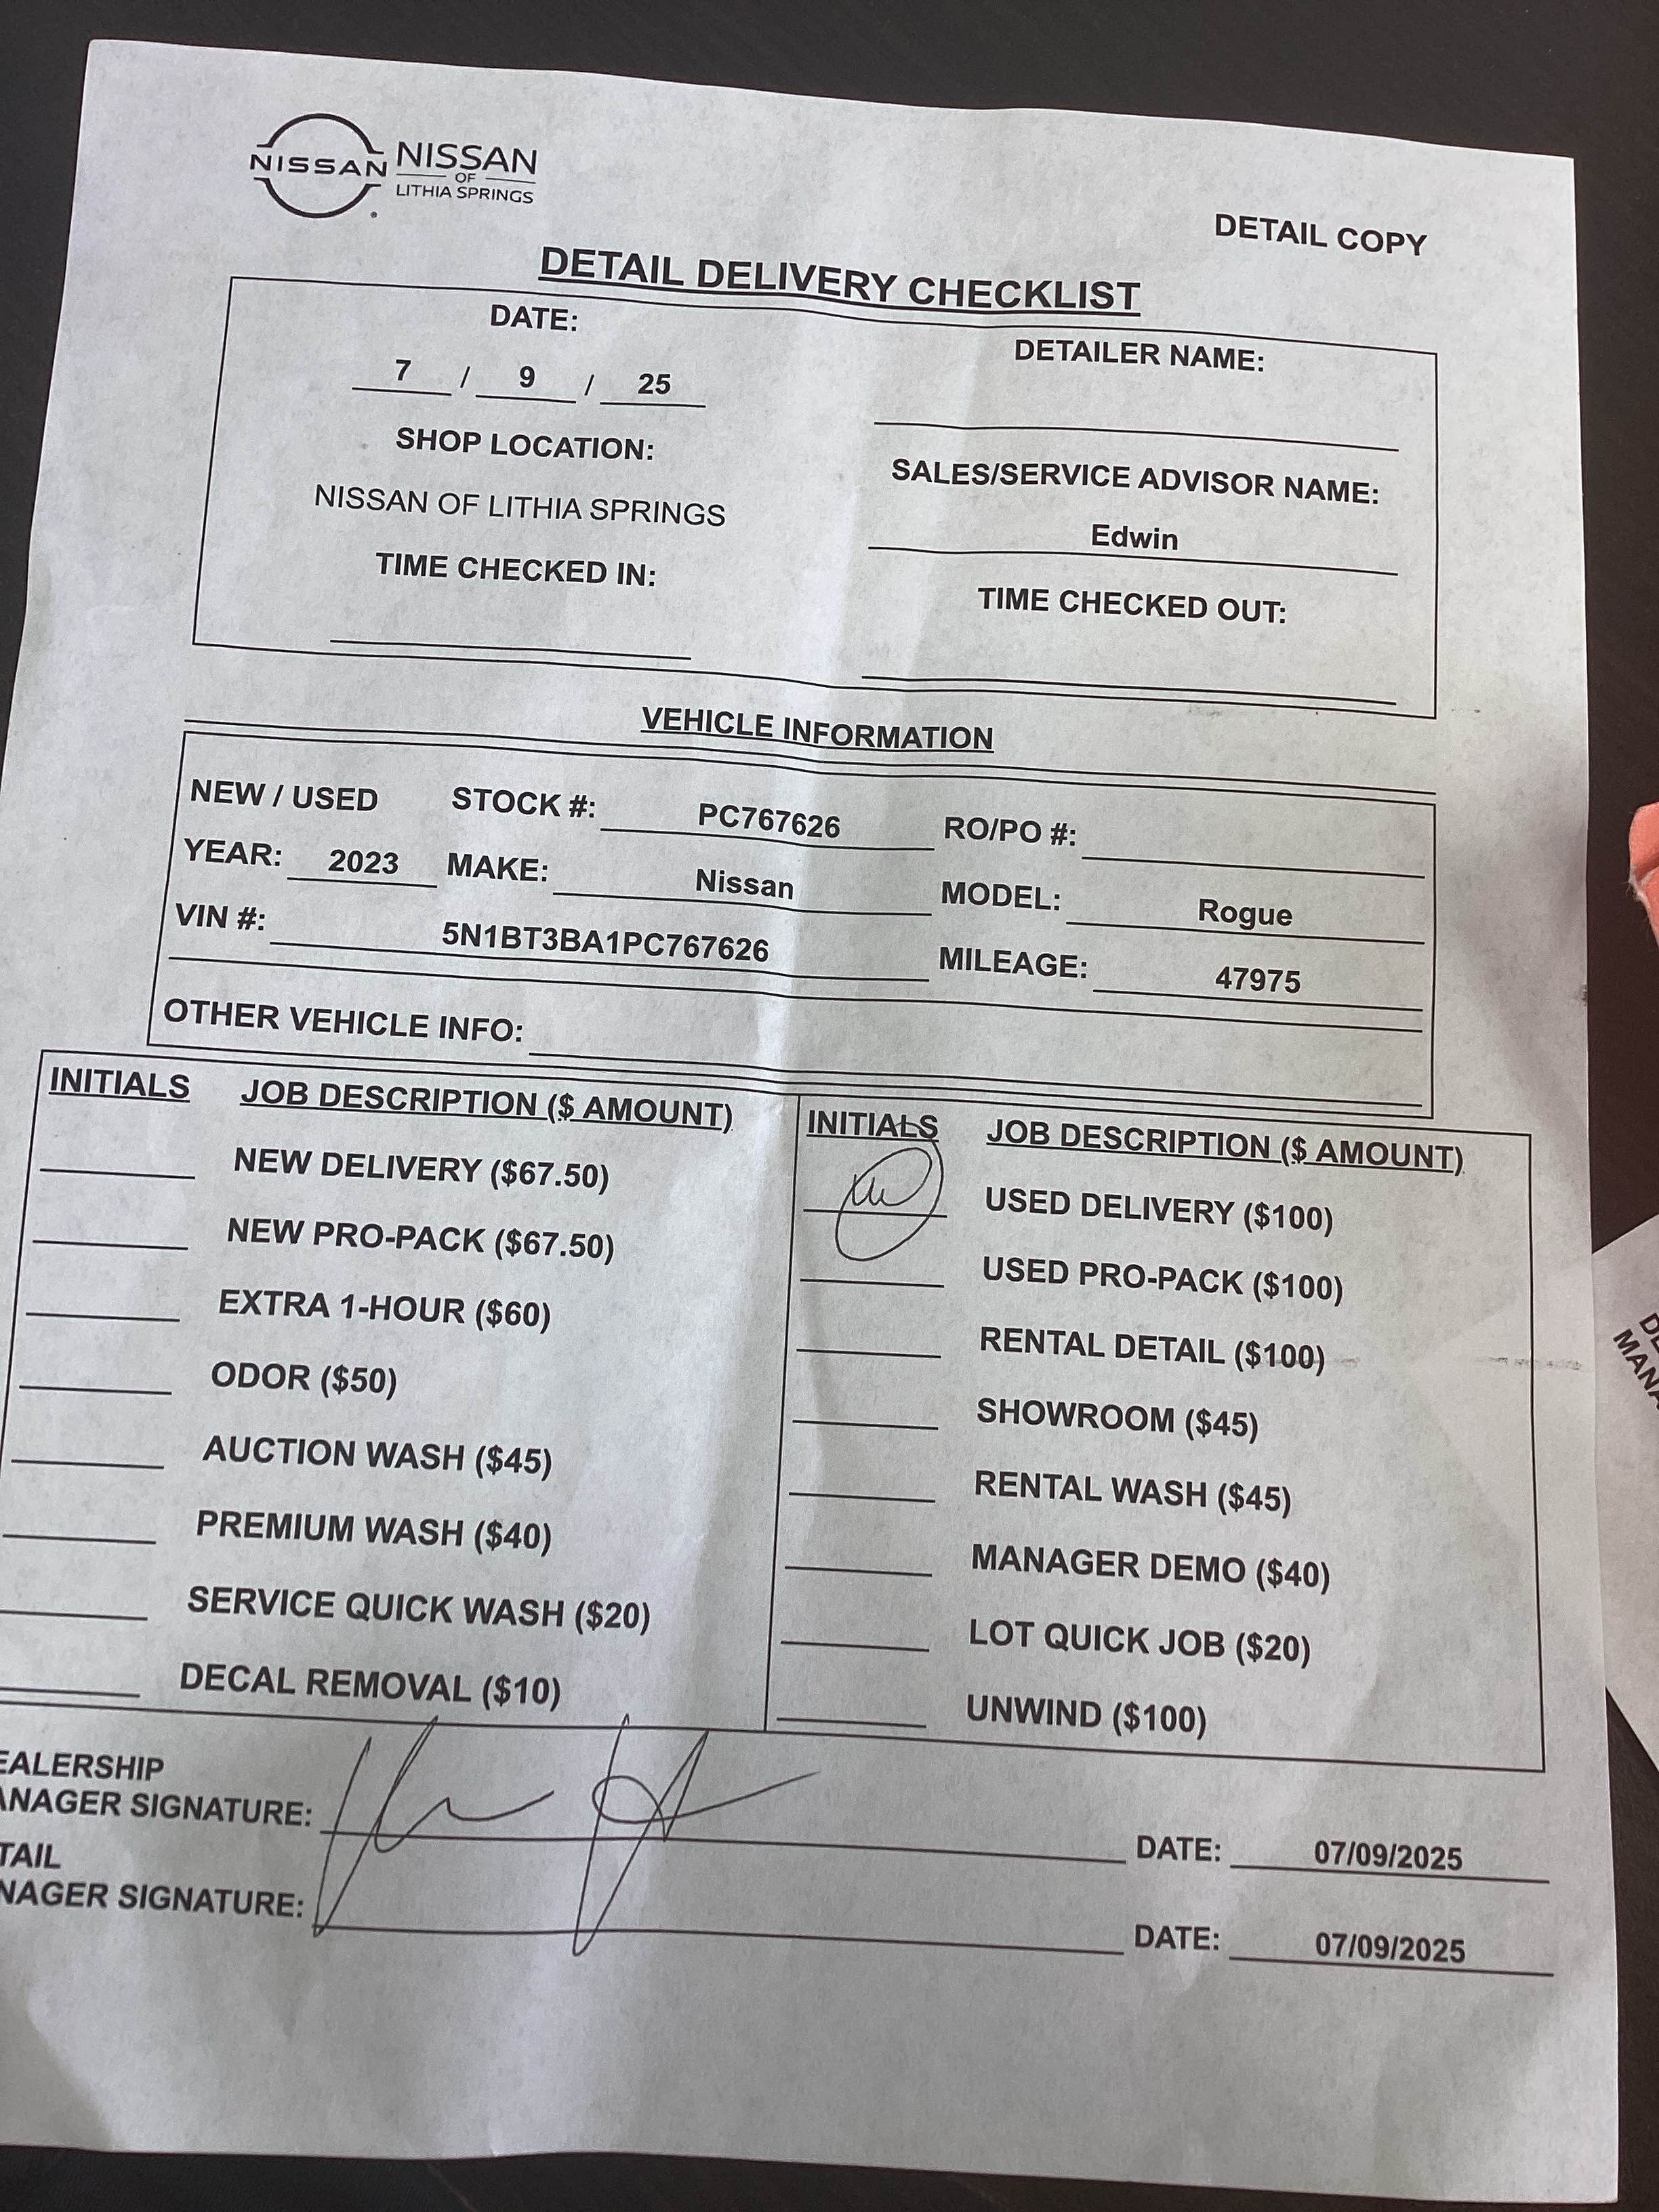 NISSAN
NISSAN
OF
LITHIA SPRINGS
DETAIL COPY
DETAIL DELIVERY CHECKLIST
DATE:
7 / 9 / 25
DETAILER NAME:
SHOP LOCATION:
NISSAN OF LITHIA SPRINGS
SALES/SERVICE ADVISOR NAME:
Edwin
TIME CHECKED IN:
TIME CHECKED OUT:
VEHICLE INFORMATION
NEW / USED STOCK #: PC767626 RO/PO #:
YEAR: 2023 MAKE: Nissan MODEL: Rogue
VIN #: 5N1BT3BA1PC767626 MILEAGE: 47975
OTHER VEHICLE INFO:
INITIALS JOB DESCRIPTION ($ AMOUNT)
NEW DELIVERY ($67.50)
NEW PRO-PACK ($67.50)
EXTRA 1-HOUR ($60)
ODOR ($50)
AUCTION WASH ($45)
PREMIUM WASH ($40)
SERVICE QUICK WASH ($20)
DECAL REMOVAL ($10)
INITIALS JOB DESCRIPTION ($ AMOUNT)
USED DELIVERY ($100)
USED PRO-PACK ($100)
RENTAL DETAIL ($100)
SHOWROOM ($45)
RENTAL WASH ($45)
MANAGER DEMO ($40)
LOT QUICK JOB ($20)
UNWIND ($100)
EALERSHIP
ANAGER SIGNATURE: DATE: 07/09/2025
TAIL
NAGER SIGNATURE: DATE: 07/09/2025
DE
MANA